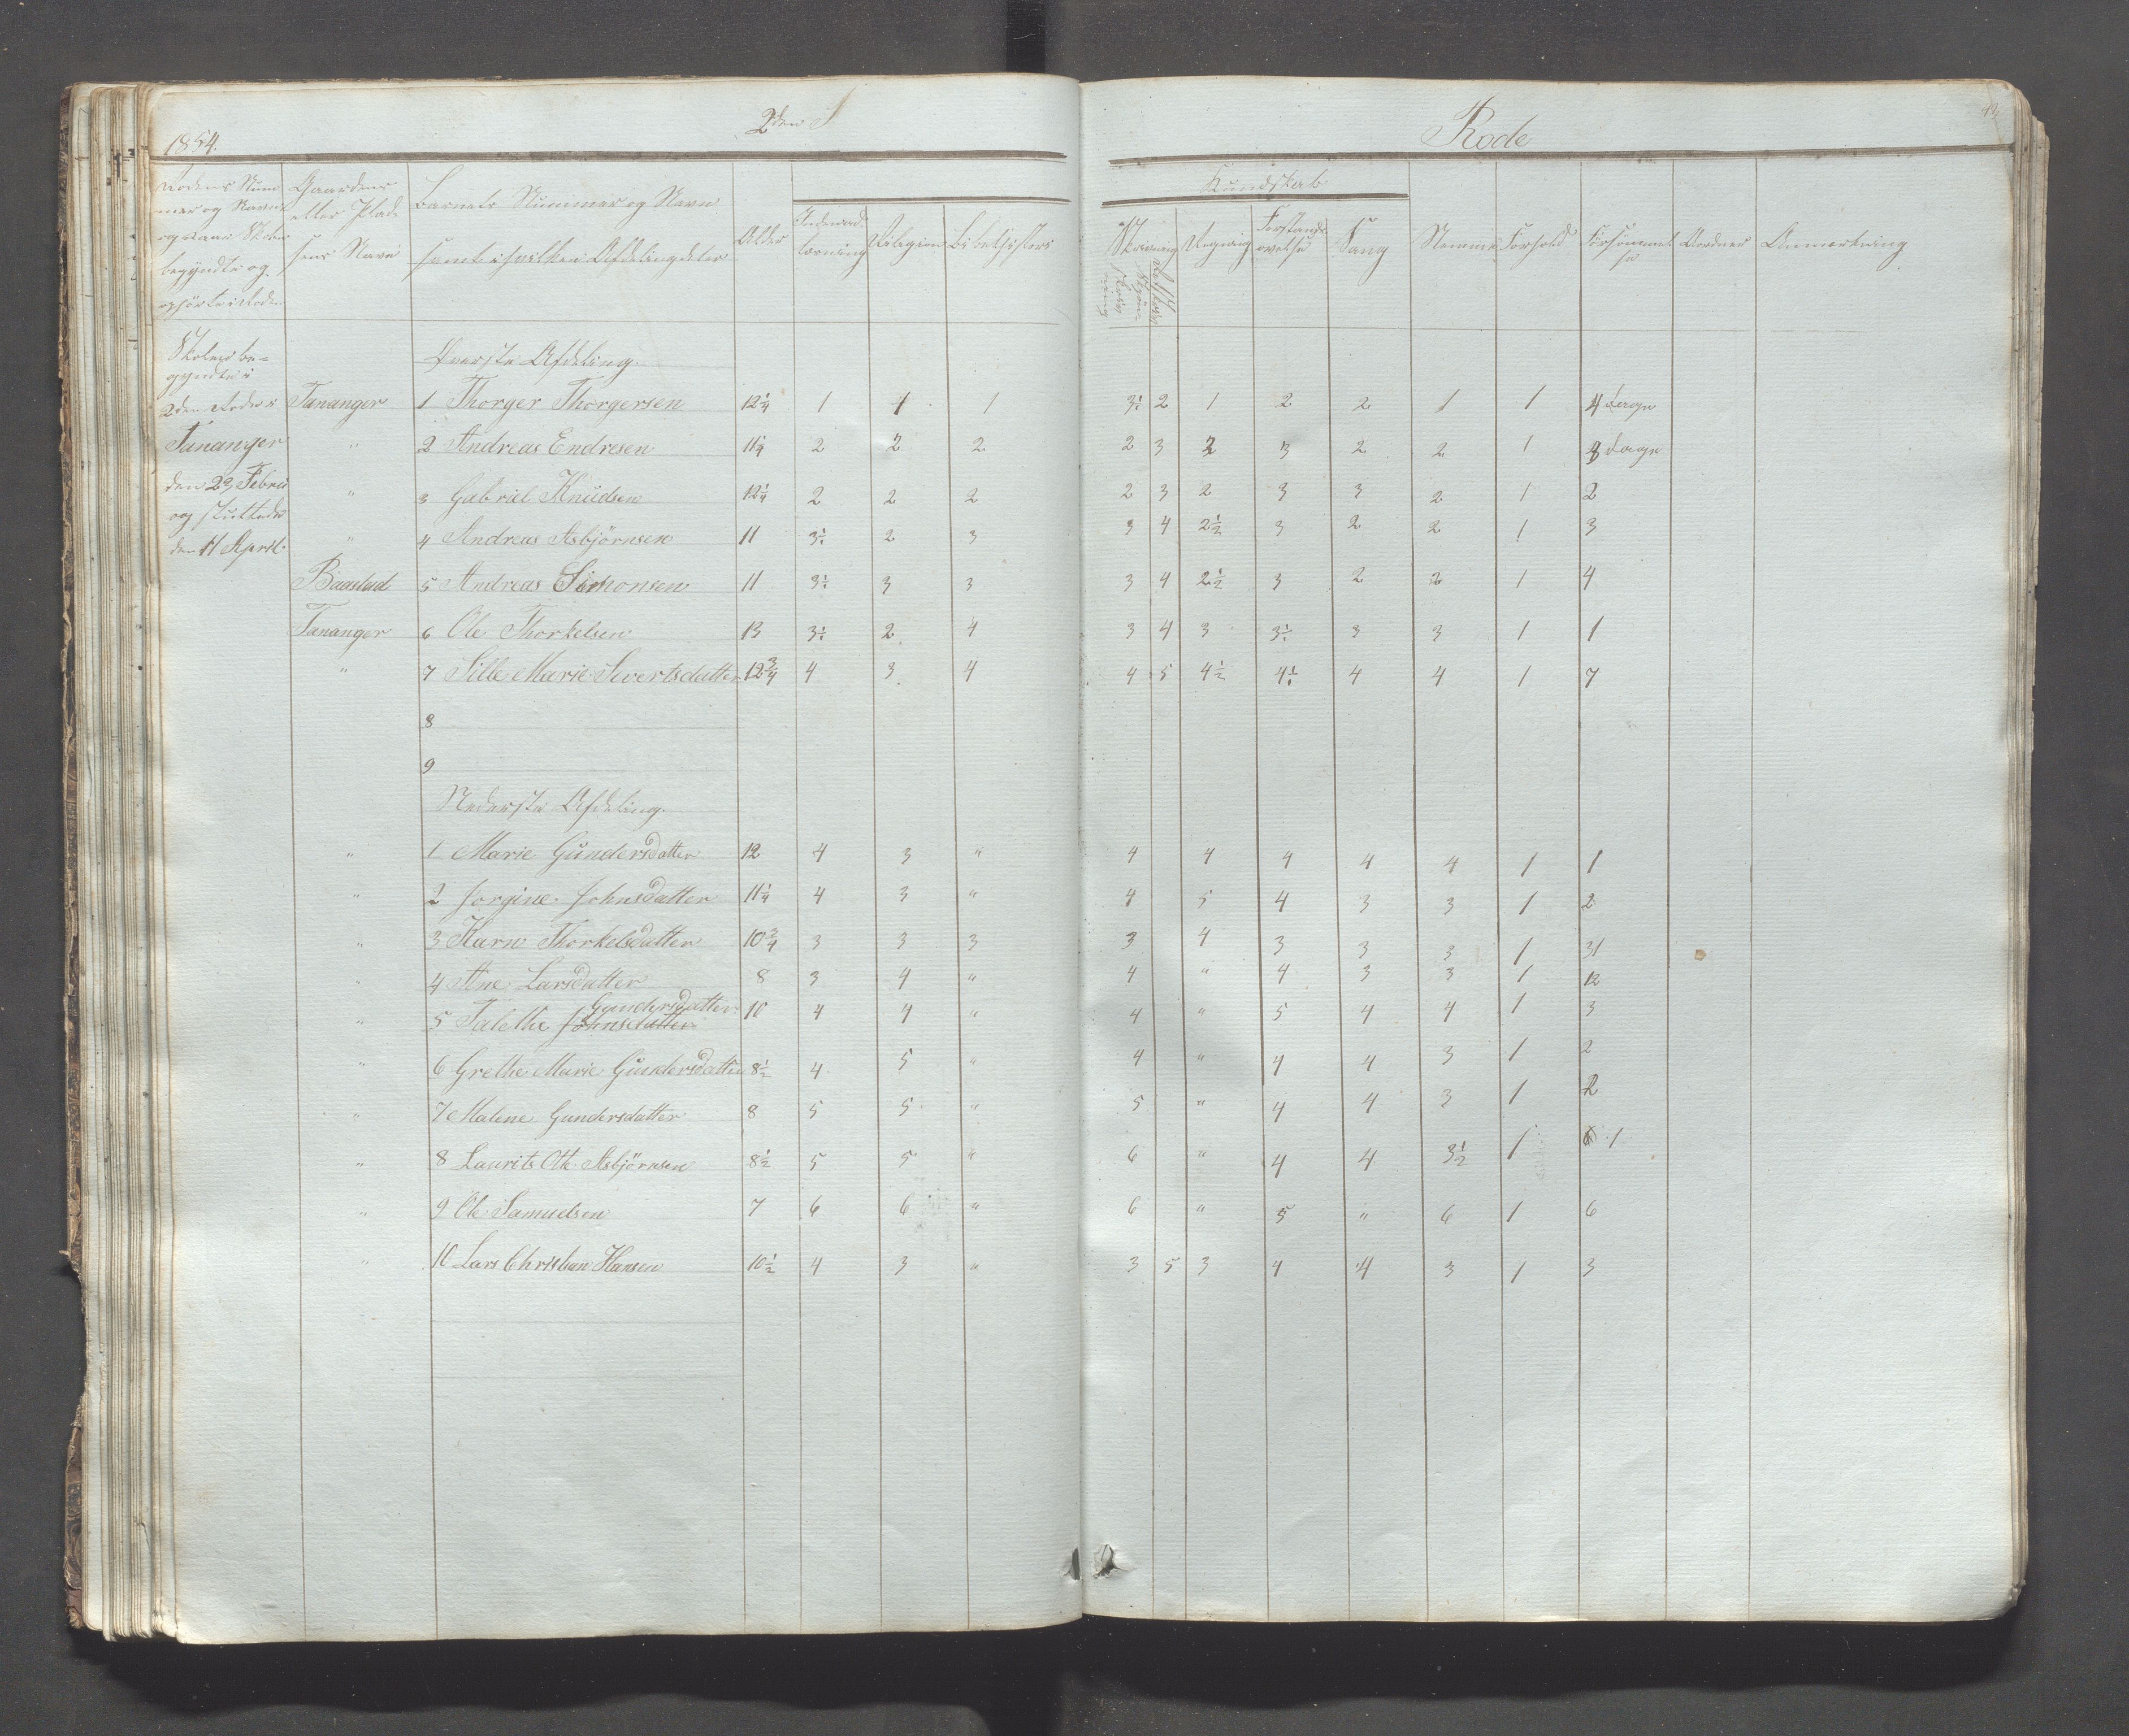 1854.
2den
Rode
Rodens Num-
mer og Navn
og naar Skolen
begyndte og
ophørte i Roden
Gaardens
eller Plad-
sens Navn
Barnets Nummer og Navn
samt i hvilken Afdeling deler
Alder
Indenad-
læsning
Religion
Bibelhistorie
Kundskab
Skrivning
Regning
Forstands-
øvelse
Sang
Nemme
Forhold
Forsømmel-
se
Anmærkning
Skolen be-
gyndte i
2den Rode i
Tananger
den 23 Febru
og sluttede
den 11 April
Øverste Afdeling.
Tananger 1 Thorger Thorgersen 12¼ 1 1 1 3½ 2 1 2 2 1 1 4 dage
" 2 Andreas Endresen 11¼ 2 2 2 2 3 2 3 2 2 1 8 dage
" 3 Gabriel Knüdsen 12¼ 2 2 2 2 3 2 3 3 2 1 2
" 4 Andreas Asbjörnsen 11 3½ 2 3 3 4 2½ 3 2 2 1 3
Baastad 5 Andreas Simonsen 11 3½ 3 3 3 4 2½ 3 2 2 1 4
Tananger 6 Ole Thorkelsen 13 3½ 2 4 3 4 3 3½ 3 3 1 1
" 7 Sille Marie Sivertsdatter 12¾ 4 3 4 4 5 4½ 4½ 4 4 1 7
8
9
Nederste Afdeling.
" 1 Marie Gündersdatter 12 4 3 " 4 4 4 4 4 1 1
" 2 Jorgine Johnsdatter 11¼ 4 3 " 4 5 4 3 3 1 2
" 3 Karn Thorkelsdatter 10¾ 3 3 3 3 4 3 3 3 1 31
" 4 Ane Larsdatter 8 3 4 " 4 " 4 3 3 1 12
Gundersdatter
" 5 Talethe Johnsdatter 10 4 4 " 4 " 5 4 4 1 3
" 6 Grethe Marie Gündersdatter 8½ 4 5 " 4 " 4 4 3 1 2
" 7 Malene Gundersdatter 8 5 5 " 5 " 4 4 3 1 2
" 8 Laurits Ott. Asbjörnsen 8½ 5 5 " 6 " 4 4 3½ 1 1
" 9 Ole Samuelsen 7 6 6 " 6 " 5 " 6 1 6
" 10 Lars Christian Hansen 10½ 4 3 " 3 5 3 4 4 3 1 3